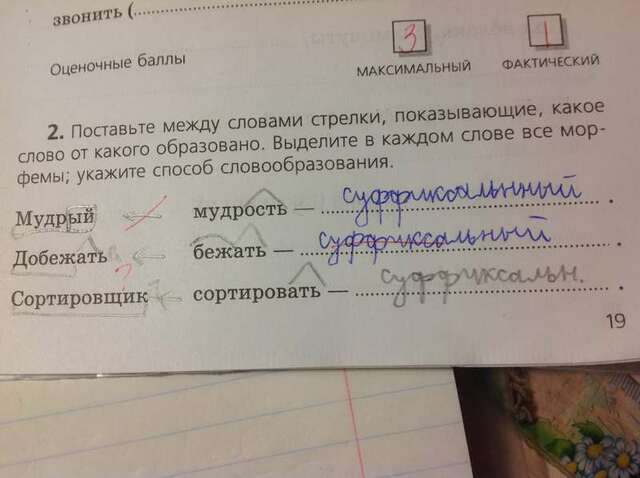 звонить (
3 1
Оценочные баллы МАКСИМАЛЬНЫЙ ФАКТИЧЕСКИЙ
2. Поставьте между словами стрелки, показывающие, какое
слово от какого образовано. Выделите в каждом слове все мор-
фемы; укажите способ словообразования.
Мудрый мудрость — суффиксальнный.
Добежать бежать — суффиксальный.
Сортировщик сортировать — суффиксальн.
19